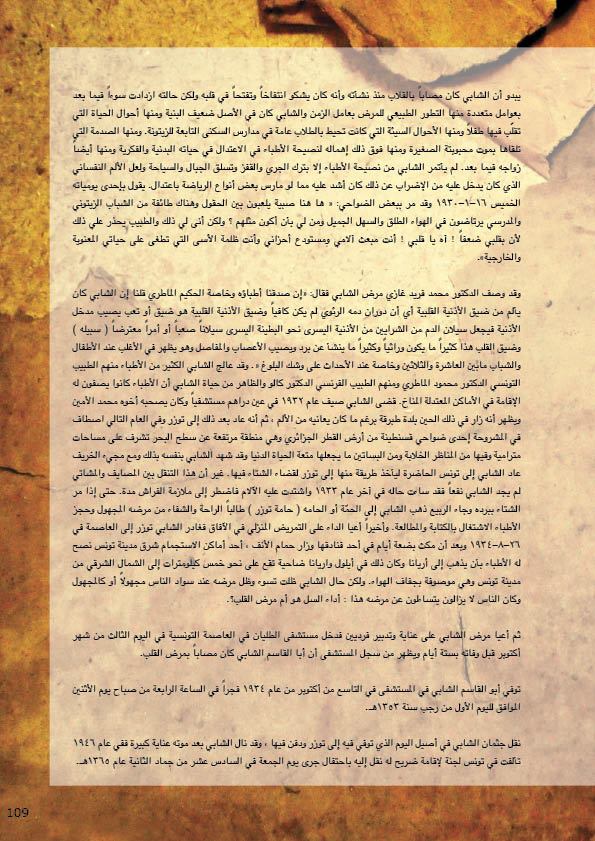 يبدو أن الشابي كان مصاباً بالقلاب منذ نشأته وأنه كان يشكو انتفاخاً وتفتحاً في قلبه ولكن حالته ازدادت سوءاً فيما بعد
بعوامل متعددة منها التطور الطبيعي للمرض بعامل الزمن والشابي كان في الأصل ضعيف البنية ومنها أحوال الحياة التي
تقلّب فيها طفلاً ومنها الأحوال السيئة التي كانت تحيط بالطلاب عامة في مدارس السكنى التابعة للزيتونة. ومنها الصدمة التي
تلقاها بموت محبوبته الصغيرة ومنها فوق ذلك إهماله لنصيحة الأطباء في الاعتدال في حياته البدنية والفكرية ومنها أيضاً
زواجه فيما بعد. لم يأتمر الشابي من نصيحة الأطباء إلا بترك الجري والقفز وتسلق الجبال والسياحة ولعل الألم النفساني
الذي كان يدخل عليه من الإضراب عن ذلك كان أشد عليه مما لو مارس بعض أنواع الرياضة باعتدال. يقول بإحدى يومياته
الخميس ١٦-١-١٩٣٠ وقد مر ببعض الضواحي: « ها هنا صبية يلعبون بين الحقول وهناك طائفة من الشباب الزيتوني
والمدرسي يرتاضون في الهواء الطلق والسهل الجميل ومن لي بأن أكون مثلهم ؟ ولكن أنى لي ذلك والطبيب يحذر علي ذلك
لأن بقلبي ضعفاً ! آه يا قلبي ! أنت مبعث آلامي ومستودع أحزاني وأنت ظلمة الأسى التي تطغى على حياتي المعنوية
والخارجية».
وقد وصف الدكتور محمد فريد غازي مرض الشابي فقال: «إن صدقنا أطباؤه وخاصة الحكيم الماطري قلنا إن الشابي كان
يألم من ضيق الأذنية القلبية أي أن دوران دمه الرئوي لم يكن كافياً وضيق الأذنية القلبية هو ضيق أو تعب يصيب مدخل
الأذنية فيجعل سيلان الدم من الشرايين من الأذنية اليسرى نحو البطينة اليسرى سيلاناً صعباً أو أمراً معترضاً ( سبيله )
وضيق القلب هذا كثيراً ما يكون وراثياً وكثيراً ما ينشأ عن برد ويصيب الأعصاب والمفاصل وهو يظهر في الأغلب عند الأطفال
والشباب مابين العاشرة والثلاثين وخاصة عند الأحداث على وشك البلوغ ». وقد عالج الشابي الكثير من الأطباء منهم الطبيب
التونسي الدكتور محمود الماطري ومنهم الطبيب الفرنسي الدكتور كالو والظاهر من حياة الشابي أن الأطباء كانوا يصفون له
الإقامة في الأماكن المعتدلة المناخ. قضى الشابي صيف عام ١٩٣٢ في عين دراهم مستشفياً وكان يصحبه أخوه محمد الأمين
ويظهر أنه زار في ذلك الحين بلدة طبرقة برغم ما كان يعانيه من الألم ، ثم أنه عاد بعد ذلك إلى توزر وفي العام التالي اصطاف
في المشروحة إحدى ضواحي قسنطينة من أرض القطر الجزائري وهي منطقة مرتفعة عن سطح البحر تشرف على مساحات
مترامية وفيها من المناظر الخلابة ومن البساتين ما يجعلها متعة الحياة الدنيا وقد شهد الشابي بنفسه بذلك ومع مجيء الخريف
عاد الشابي إلى تونس الحاضرة ليأخذ طريقة منها إلى توزر لقضاء الشتاء فيها. غير أن هذا التنقل بين المصايف والمشاتي
لم يجد الشابي نفعاً فقد ساءت حاله في آخر عام ١٩٣٣ واشتدت عليه الآلام فاضطر إلى ملازمة الفراش مدة. حتى إذا مر
الشتاء ببرده وجاء الربيع ذهب الشابي إلى الحمّة أو الحامه ( حامة توزر ) طالباً الراحة والشفاء من مرضه المجهول وحجز
الأطباء الاشتغال بالكتابة والمطالعة. وأخيراً أعيا الداء على التمريض المنزلي في الآفاق فغادر الشابي توزر إلى العاصمة في
٢٦-٨-١٩٣٤ وبعد أن مكث بضعة أيام في أحد فنادقها وزار حمام الأنف ، أحد أماكن الاستجمام شرق مدينة تونس نصح
له الأطباء بأن يذهب إلى أريانا وكان ذلك في أيلول واريانا ضاحية تقع على نحو خمس كيلومترات إلى الشمال الشرقي من
مدينة تونس وهي موصوفة بجفاف الهواء. ولكن حال الشابي ظلت تسوء وظل مرضه عند سواد الناس مجهولاً أو كالمجهول
وكان الناس لا يزالون يتساءلون عن مرضه هذا : أداء السل هو أم مرض القلب؟.
ثم أعيا مرض الشابي على عناية وتدبير فرديين فدخل مستشفى الطليان في العاصمة التونسية في اليوم الثالث من شهر
أكتوبر قبل وفاته بستة أيام ويظهر من سجل المستشفى أن أبا القاسم الشابي كان مصاباً بمرض القلب.
توفي أبو القاسم الشابي في المستشفى في التاسع من أكتوبر من عام ١٩٣٤ فجراً في الساعة الرابعة من صباح يوم الأثنين
الموافق لليوم الأول من رجب سنة ١٣٥٣هـ.
نقل جثمان الشابي في أصيل اليوم الذي توفي فيه إلى توزر ودفن فيها ، وقد نال الشابي بعد موته عناية كبيرة ففي عام ١٩٤٦
تألفت في تونس لجنة لإقامة ضريح له نقل إليه باحتفال جرى يوم الجمعة في السادس عشر من جماد الثانية عام ١٣٦٥هـ.
109